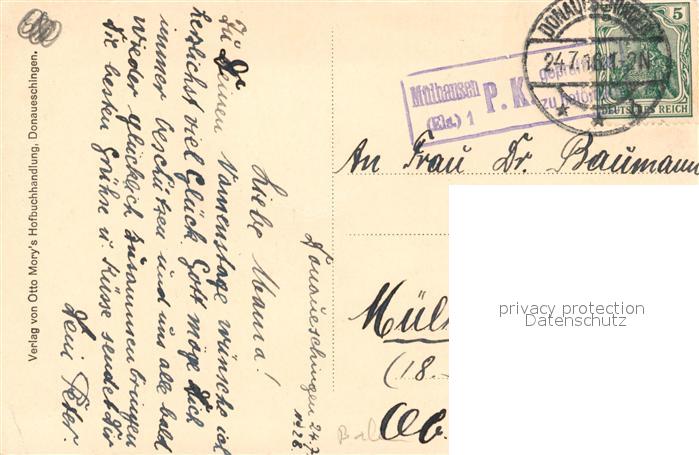 Donaueschingen 24.7.
Liebe Mama!
Zu Deinem Namenstage wünsche ich
herzlichst viel Glück. Gott möge Dich
immer beschützen und uns alle bald
wieder glücklich zusammenbringen
die besten Grühse u. Küsse sendet Dir
Dein Peter.
Verlag von Otto Mory's Hofbuchhandlung, Donaueschingen.
DONAUESCHINGEN
24.7.16. 1-2N
5
DEUTSCHES REICH
Mülhausen
(Els.) 1
P. K.
geprüft
zu befördern
An Frau Dr. Baumann
Mül
(18-
Ob.
privacy protection
Datenschutz